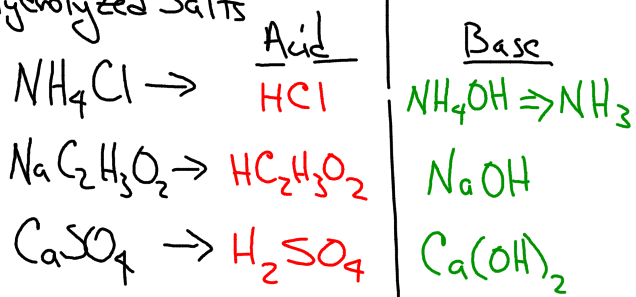 Hydrolyzed Salts
Acid Base
NH₄Cl → HCl NH₄OH ⇒ NH₃
NaC₂H₃O₂ → HC₂H₃O₂ NaOH
CaSO₄ → H₂SO₄ Ca(OH)₂